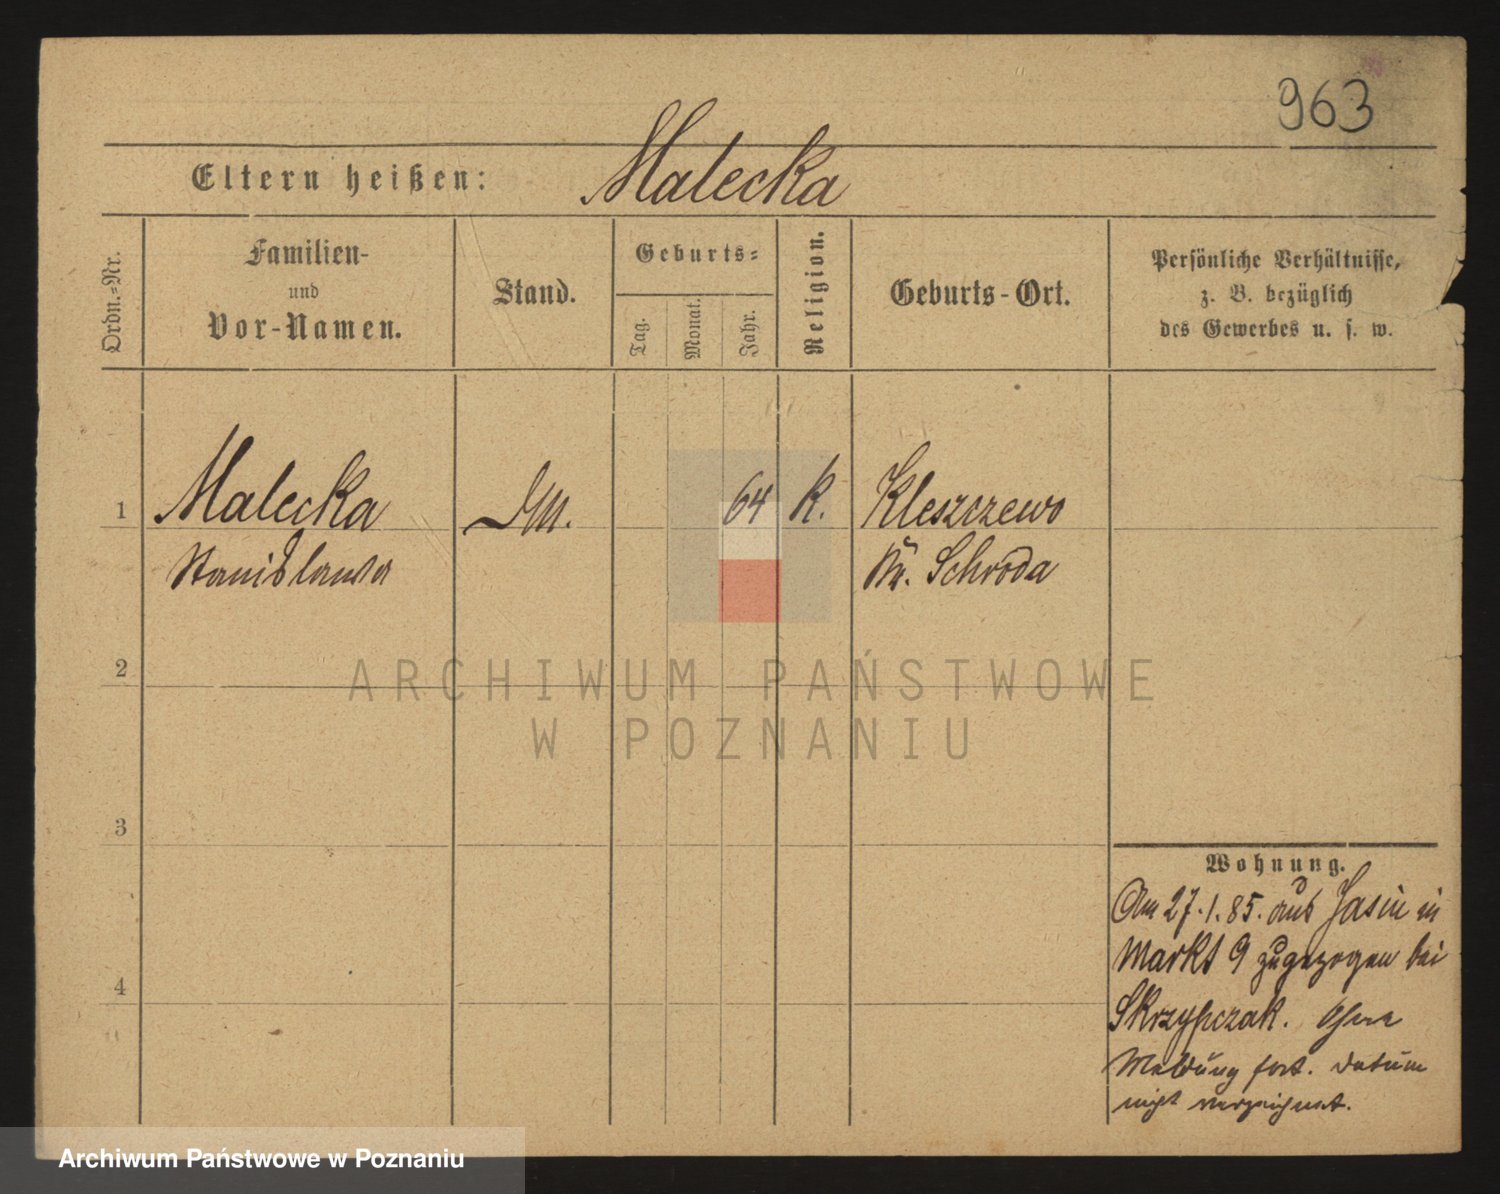 963
Eltern heißen: Malecka
Ordn.-Nr.
Familien-
und
Vor-Namen.
Stand.
Geburts-
Tag.
Monat.
Jahr.
Religion.
Geburts-Ort.
Persönliche Verhältnisse,
z. B. bezüglich
des Gewerbes u. s. w.
1 Malecka DM. 64 K. Kleszczewo
Stanislawa Kr. Schroda
2
ARCHIWUM PAŃSTWOWE
W POZNANIU
3
Wohnung.
Am 27.1.85. aus Jasin in
Markt 9 zugezogen bei
4
Skrzypczak. Ohne
Meldung fort. Datum
nicht verzeichnet.
Archiwum Państwowe w Poznaniu